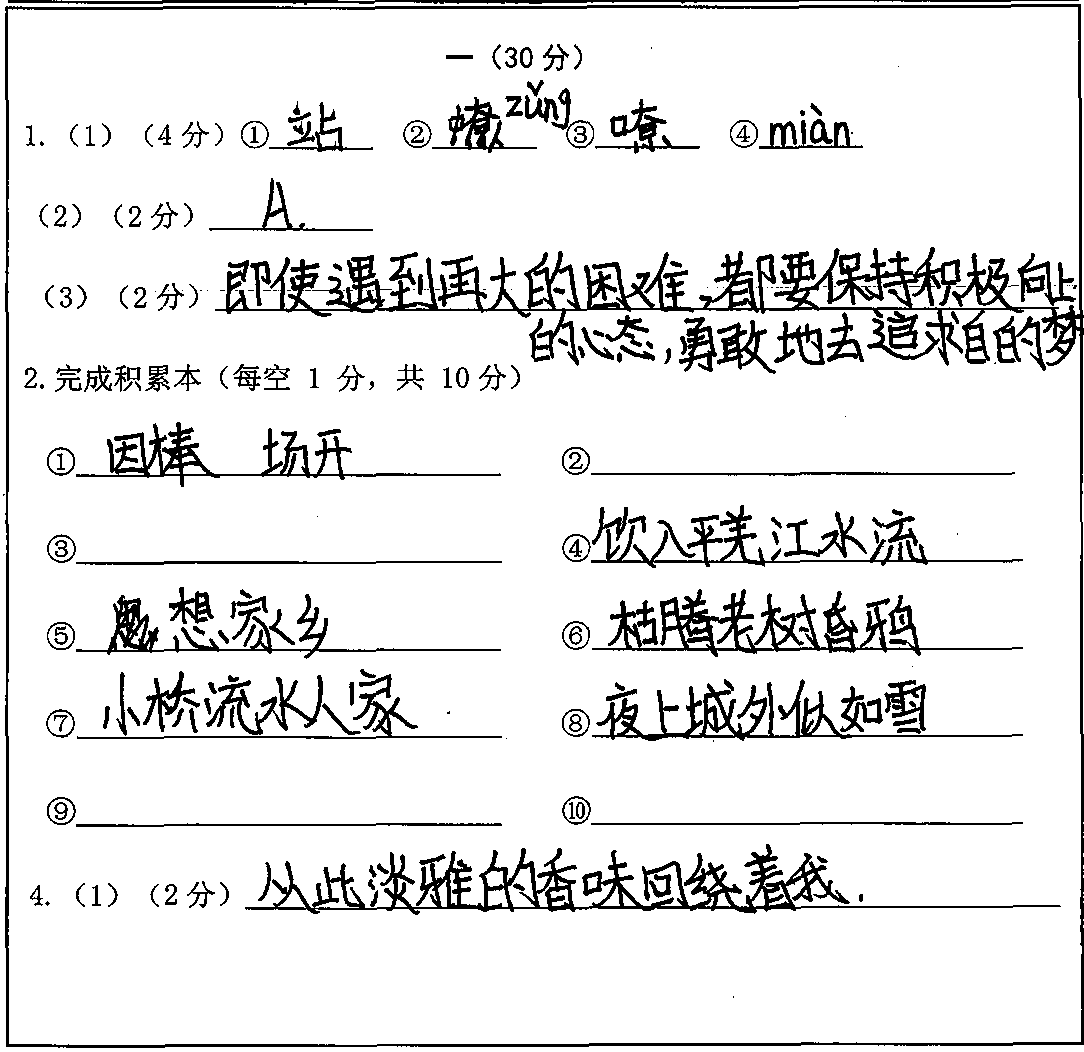 一（30 分）
1.（1）（4 分）① 站 ② zǔng ③ 嘹 ④ miàn
（2）（2 分） A.
（3）（2 分）即使遇到再大的困难，都要保持积极向上
的心态，勇敢地去追求自的梦
2.完成积累本（每空 1 分，共 10 分）
① 因棒 场开 ②
③ ④ 饮入平羌江水流
⑤ 想家乡 ⑥ 枯腾老树昏鸦
⑦ 小桥流水人家 ⑧ 夜上城外似如雪
⑨ ⑩
4.（1）（2 分）从此淡雅的香味回绕着我.